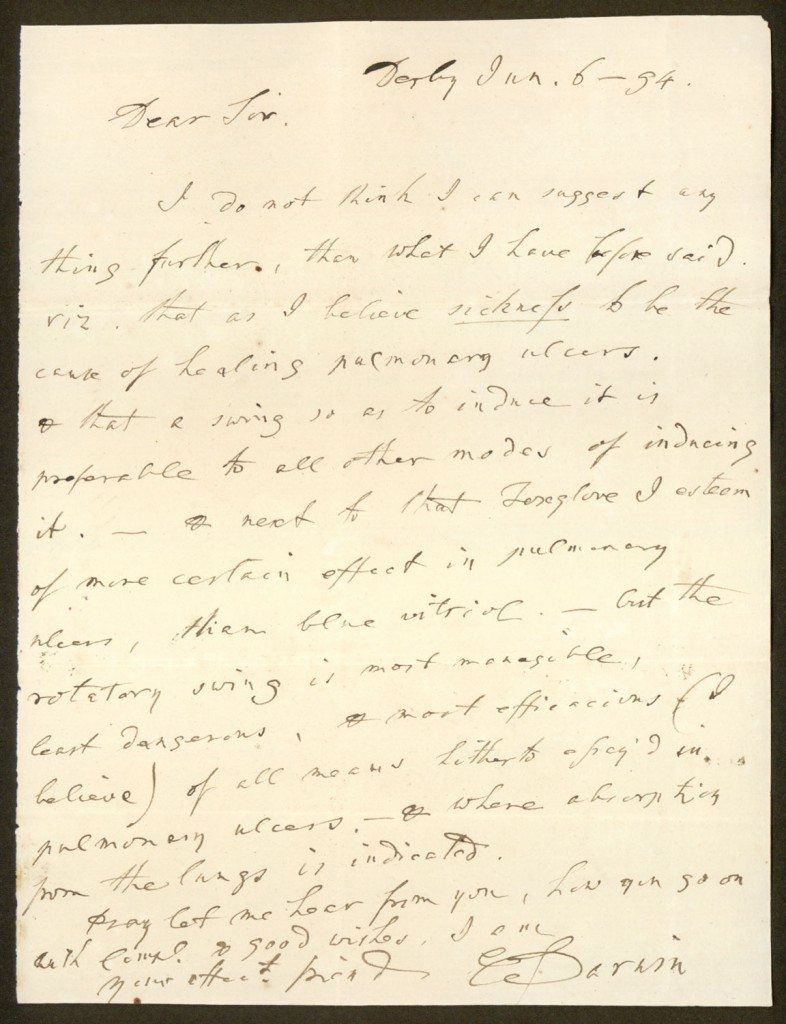 Derby Jun. 6 – 94.
Dear Sir.
I do not think I can suggest any
thing further, than what I have before said.
viz. that as I believe sickness to be the
cause of healing pulmonary ulcers.
& that a swing so as to induce it is
preferable to all other modes of inducing
it. – & next to that Foxglove I esteem
of more certain effect in pulmonary
ulcers, than blue vitriol. – but the
rotatory swing is most managible,
least dangerous, & most efficacious (I
believe) of all means hitherto essay'd in
pulmonary ulcers. – & where absorption
from the lungs is indicated.
pray let me hear from you, how you go on
with compl. & good wishes, I am
your affect. friend E Darwin